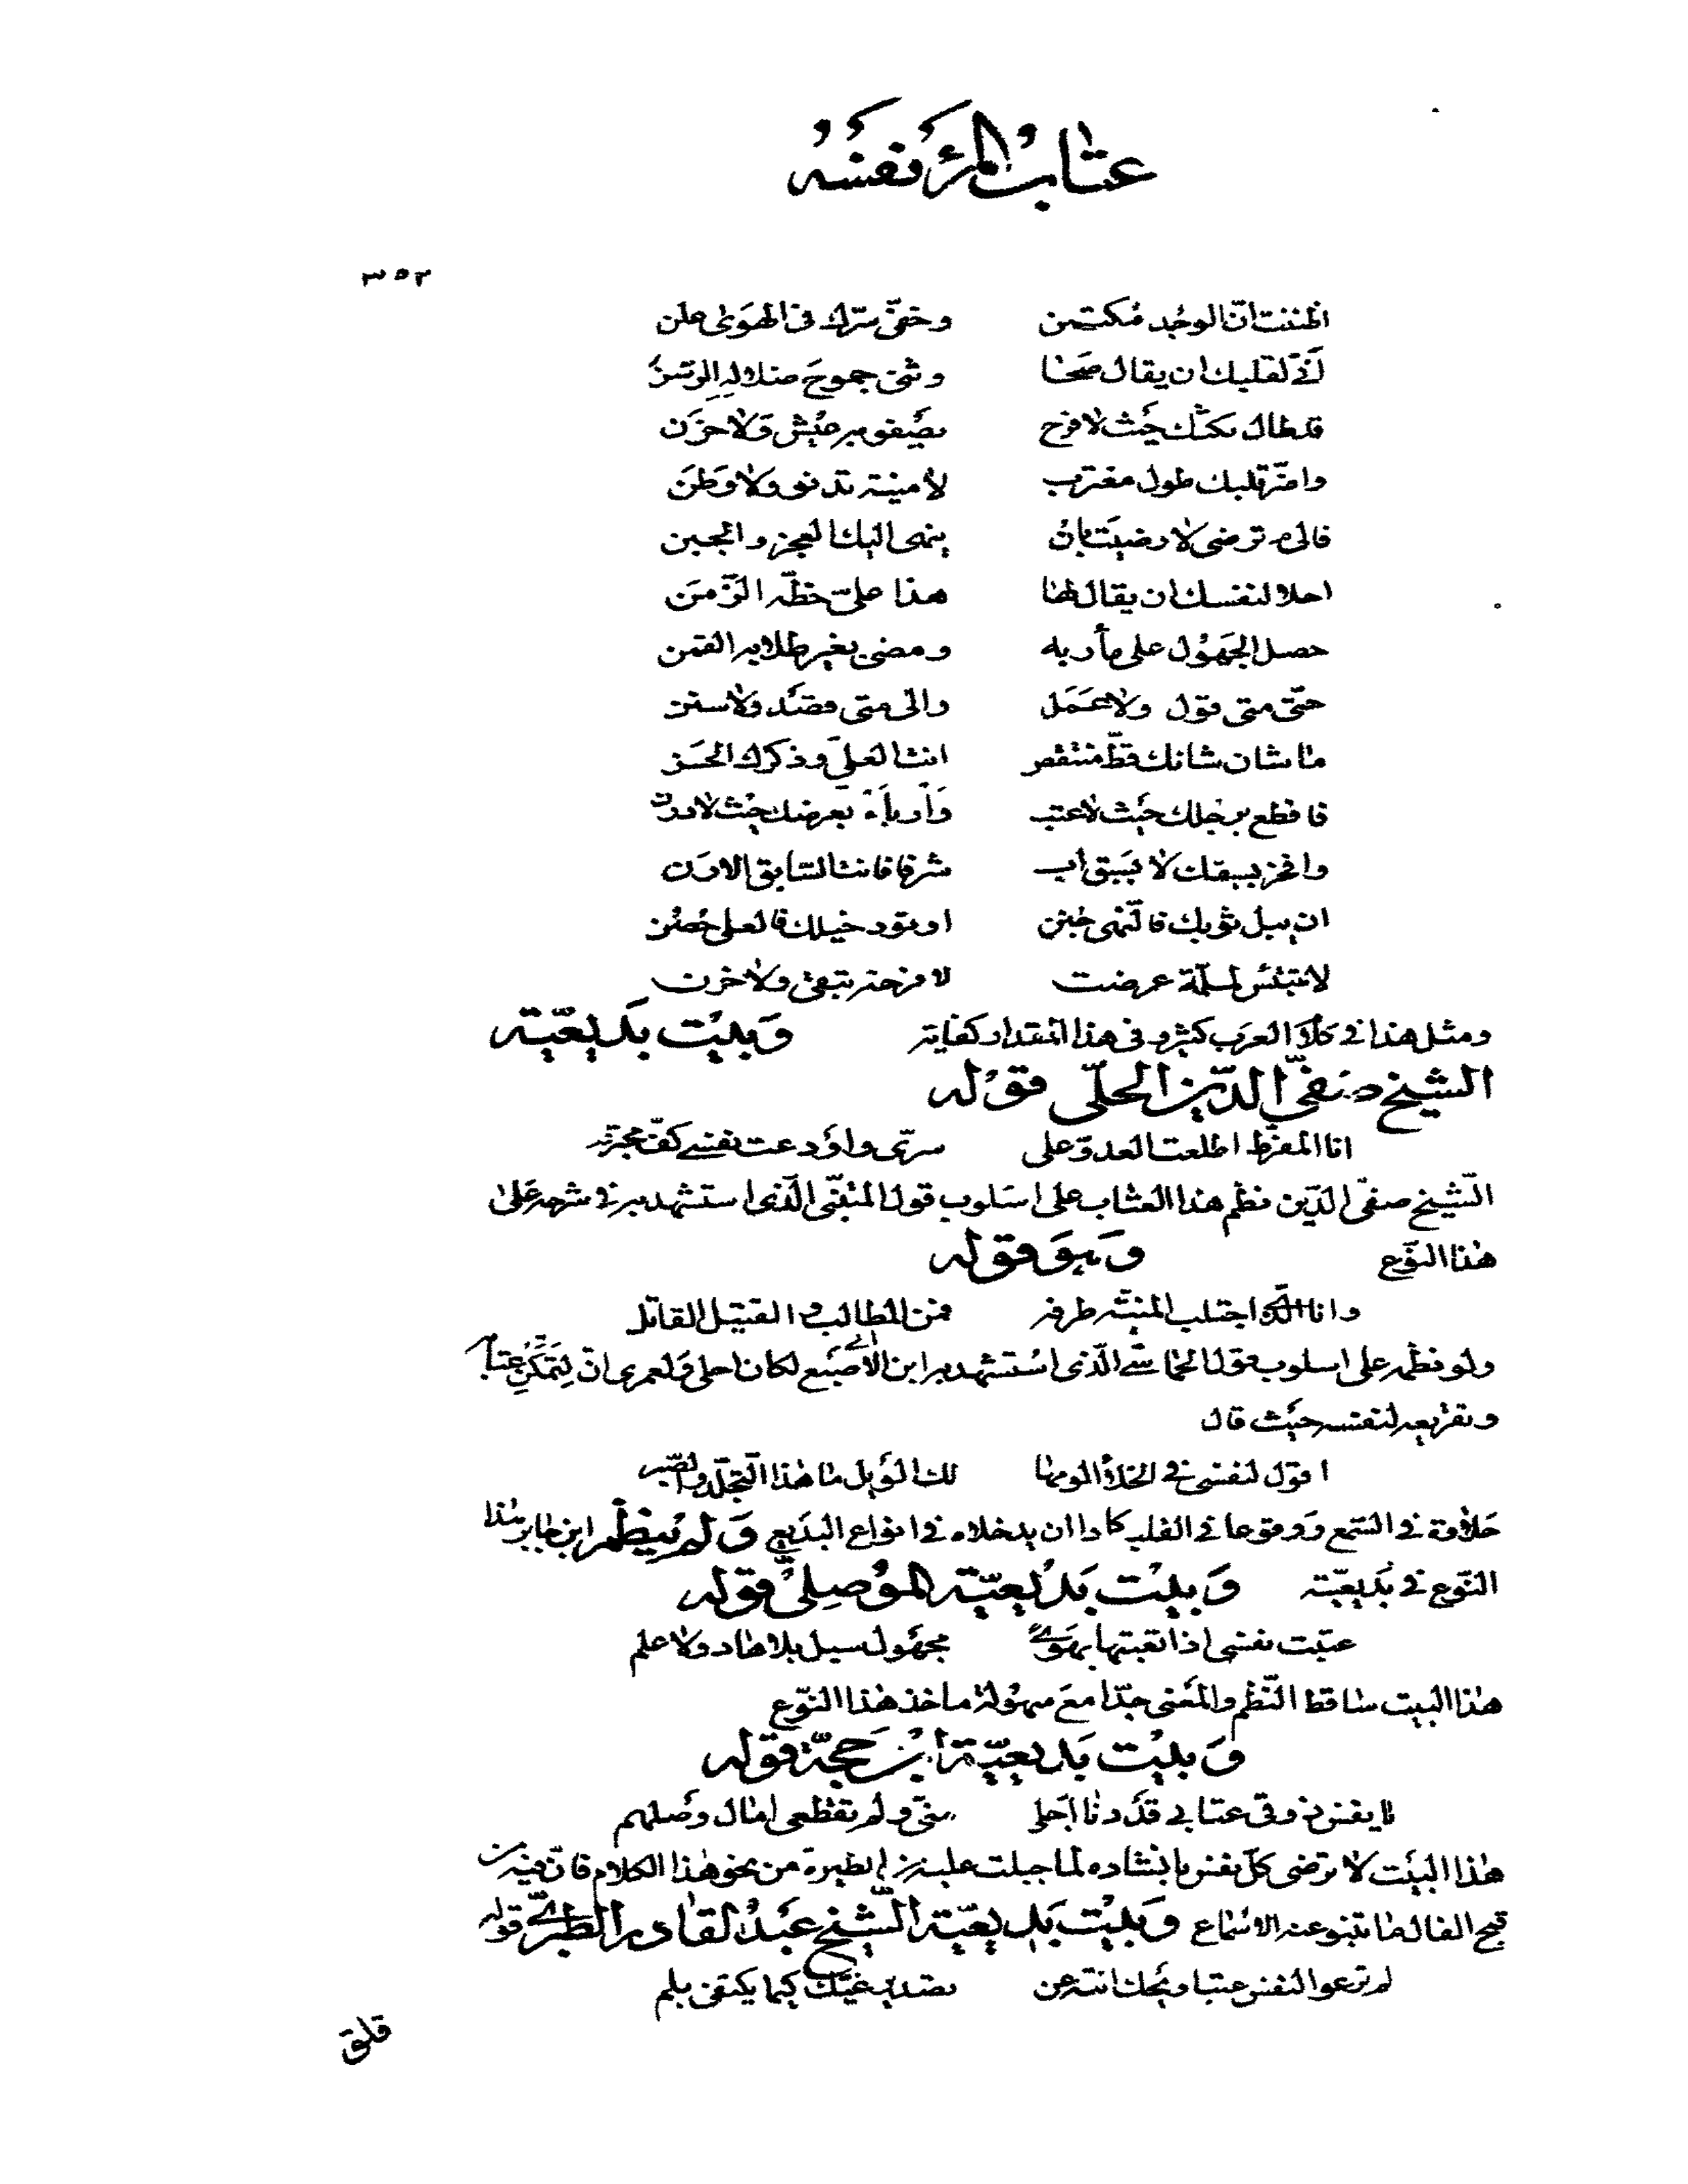 عتاب المرء نفسه
٣٥٢
اظننت انّ الوجد مكتمن وخفيّ سرّك في الهوى علن
لقلبك ان يقال صحا وثنى جموح ضلاله الوسن
قد طال مكثك حيث لا فرح يصفو به عيش ولا حزن
واضرّ قلبك طول مغترب لا منية تدنو ولا وطن
فالىم ترضى لا رضيت بان ينمى اليك العجز والجبن
احلا لنفسك ان يقال لها هذا عليّ حظّه الزّمن
حصل الجهول على مأربه ومضى بغير طلابه القمن
حتّى متى قول ولا عمل والى متى قصد ولا سنن
ما شان شانك قطّ منتقص انت العليّ وذكرك الحسن
فاقطع حبلك حيث لا عتب وأربأ بعرضك حيث لا درن
وافخر بسبقك لا بسبق أب شرفا فانت السّابق الارن
ان يبل ثوبك فالنهى جنن او تود خيلك فالعلى حصن
لا تبتئس لملمّة عرضت لا فرحة تبقى ولا حزن
ومثل هذا في كلام العرب كثير وفي هذا المقدار كفاية وبيت بديعيّة
الشيخ صفيّ الدّين الحلّي قوله
انا المفرّط اطلعت العدوّ على سرّى واودعت نفسي كفّ مخترم
الشّيخ صفيّ الدّين نظم هذا العتاب على اسلوب قول المتنبّى الّذى استشهد به في شرحه على
هذا النّوع وهو قوله
وانا الّذى اجتلب المنيّة طرفه فمن المطالب والقتيل القاتل
ولو نظمه على اسلوب قول الحماسي الّذى استشهد به ابن ابي الأصبع لكان احلى ولعمرى انّ عتابه
وتقريعه لنفسه حيث قال
اقول لنفسى في الخلاء الومها لك الويل ما هذا التّجلّد والصّبر
حلاوة في السّمع ووقوعا في القلب كادا ان يدخلاه في انواع البديع ولم ينظم ابن جابر هذا
النّوع في بديعيّته وبيت بديعيّة الموصلي قوله
عتبت نفسى اذا تعبتها بهوى مجهول سبيل بلا هاد ولا علم
هذا البيت ساقط النّظم والمعنى جدّا مع سهولة ماخذ هذا النّوع
وبيت بديعيّة ابن حجّة قوله
يا نفس ذوقى عتابي قد دنا اجلى منّى ولم تقطعى امال وصلهم
هذا البيت لا ترضى كلّ نفس بانشاده لما جبلت عليه من الطيرة من نحو هذا الكلام فانّ فيه من
قبح الفال ما تنبو عنه الاسماع وبيت بديعيّة الشّيخ عبد القادر الطّبريّ قوله
لم ترعوا النفس عتبا ويحك انته عن كيما يكتفى بلم
قلق